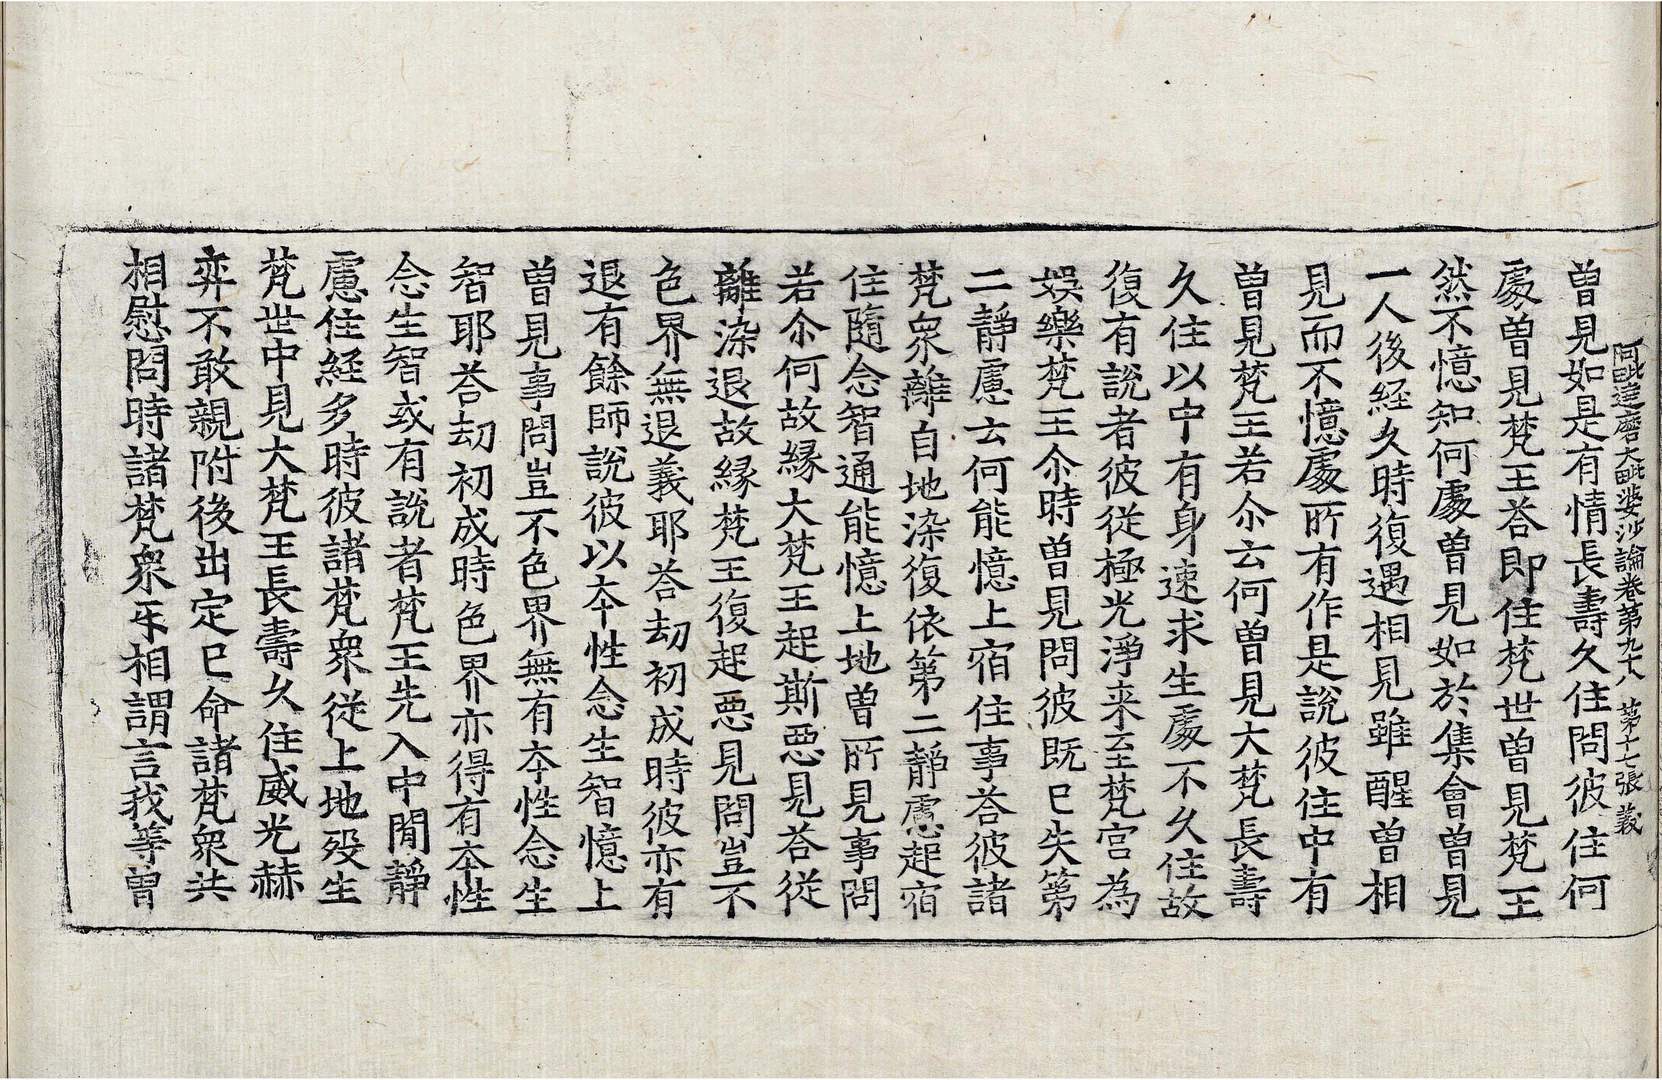 阿毗達磨大毗婆沙論卷第九十八 第十七張 義
曽見如是有情長壽久住問彼住何
處曽見梵王荅即住梵世曽見梵王
然不憶知何處曽見如於集會曽見
一人後經久時復遇相見雖醒曽相
見而不憶處所有作是說彼住中有
曽見梵王若尒云何曽見大梵長壽
久住以中有身速求生處不久住故
復有說者彼從極光淨来至梵宫為
娱樂梵王尒時曽見問彼既已失第
二靜慮云何能憶上宿住事荅彼諸
梵衆離自地染復依第二靜慮起宿
住隨念智通能憶上地曽所見事問
若尒何故縁大梵王起斯惡見荅從
離染退故縁梵王復起惡見問豈不
色界無退義耶荅劫初成時彼亦有
退有餘師說彼以夲性念生智憶上
曽見事問豈不色界無有夲性念生
智耶荅劫初成時色界亦得有夲性
念生智或有說者梵王先入中閒靜
慮住經多時彼諸梵衆從上地歿生
梵世中見大梵王長壽久住威光赫
弈不敢親附後出定已命諸梵衆共
相慰問時諸梵衆㸦相謂言我等曽